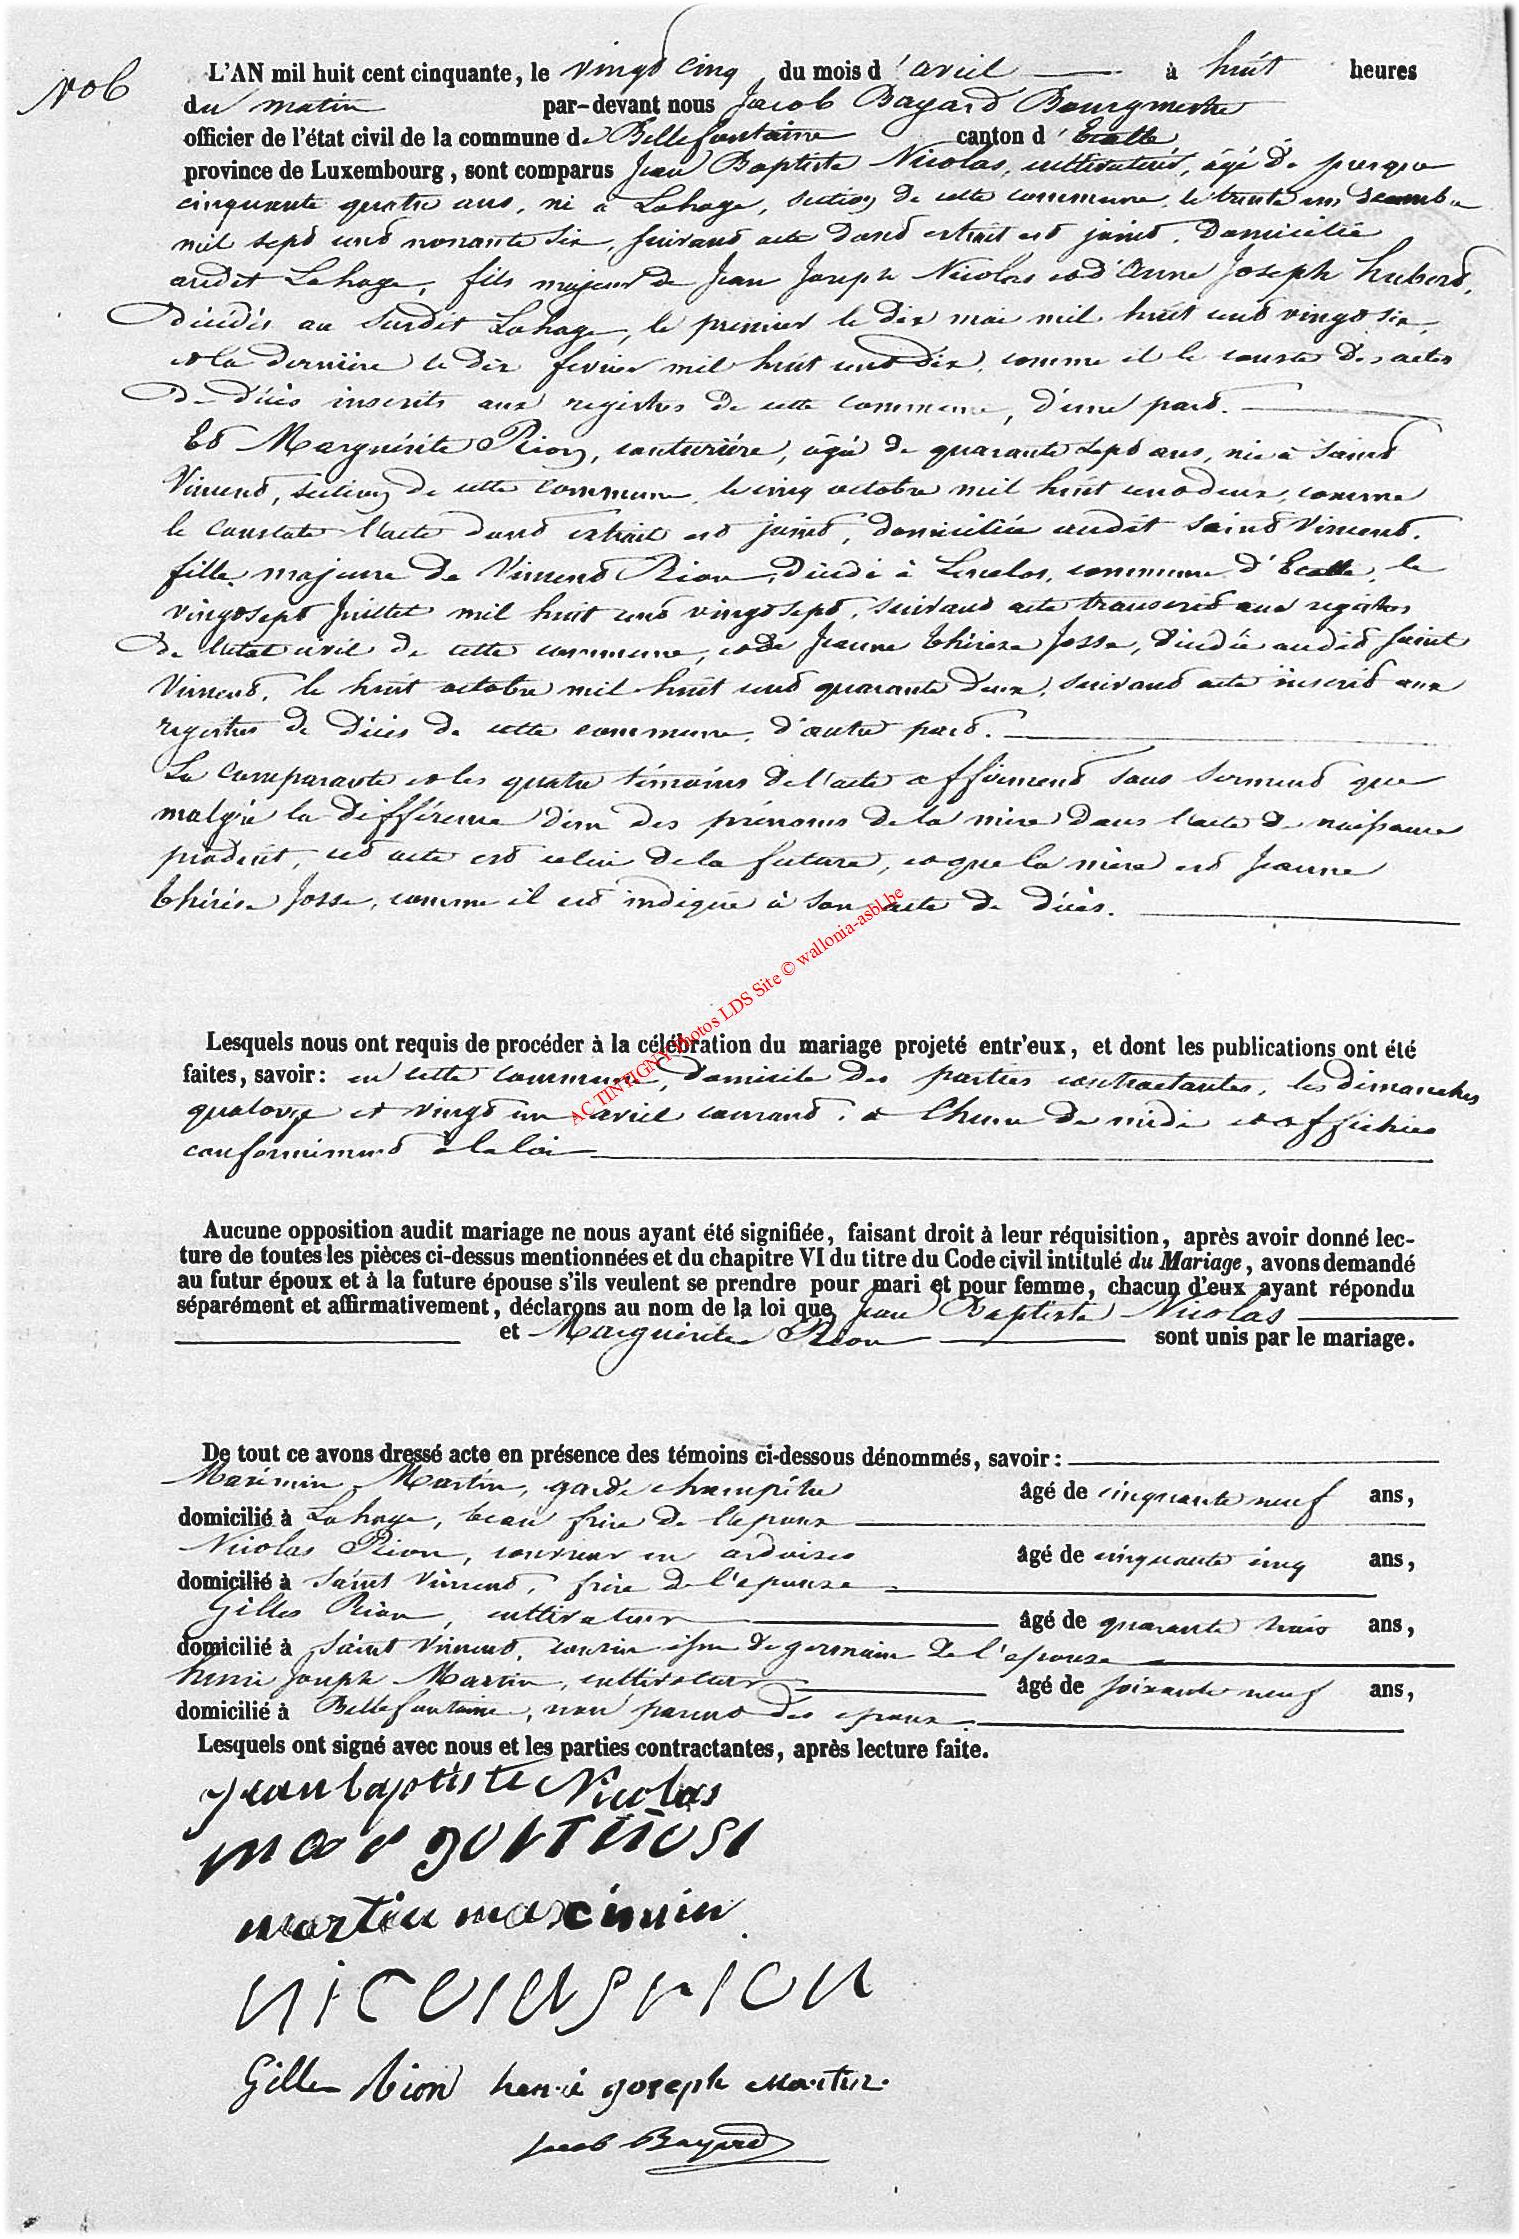 No 6
L'AN mil huit cent cinquante, le vingt cinq du mois d'avril à huit heures
du matin par-devant nous Jacob Bayard Bourgmestre
officier de l'état civil de la commune de Bellefontaine canton d'Etalle
province de Luxembourg, sont comparus Jean Baptiste Nicolas, cultivateur, âgé de presque
cinquante quatre ans, né à Lahage, section de cette commune, le trente un décembre
mil sept cent nonante six, suivant acte dont extrait est joint, domicilié
audit Lahage, fils majeur de Jean Joseph Nicolas et d'Anne Joseph Hubert,
décédés au susdit Lahage, le premier le dix mai mil huit cent vingt six,
et la dernière le dix février mil huit cent dix, comme il le conste des actes
de décès inscrits aux registres de cette commune, d'une part.
Et Marguérite Rion, couturière, âgée de quarante sept ans, née à Saint
Vincent, section de cette commune, le cinq octobre mil huit cent deux, comme
le constate l'acte dont extrait est joint, domiciliée audit Saint Vincent,
fille majeure de Vincent Rion, décédé à Lenclos, commune d'Etalle, le
vingt sept Juillet mil huit cent vingt sept, suivant acte transcrit aux registres
de l'état civil de cette commune, et de Jeanne Thérèse Josse, décédée audit Saint
Vincent, le huit octobre mil huit cent quarante deux, suivant acte inscrit aux
registres de décès de cette commune, d'autre part.
La comparante et les quatre témoins de l'acte affirment sous serment que
malgré la différence d'un des prénoms de la mère dans l'acte de naissance
produit, cet acte est celui de la future, et que la mère est Jeanne
Thérèse Josse, comme il est indiqué à son acte de décès.
AC TINTIGNY Photos LDS Site © wallonia-asbl.be
Lesquels nous ont requis de procéder à la célébration du mariage projeté entr'eux, et dont les publications ont été
faites, savoir: en cette commune, domicile des parties contractantes, les dimanches
quatorze et vingt un avril courant, à l'heure de midi et affichées
conformément à la loi
Aucune opposition audit mariage ne nous ayant été signifiée, faisant droit à leur réquisition, après avoir donné lec-
ture de toutes les pièces ci-dessus mentionnées et du chapitre VI du titre du Code civil intitulé du Mariage, avons demandé
au futur époux et à la future épouse s'ils veulent se prendre pour mari et pour femme, chacun d'eux ayant répondu
séparément et affirmativement, déclarons au nom de la loi que Jean Baptiste Nicolas
et Marguérite Rion sont unis par le mariage.
De tout ce avons dressé acte en présence des témoins ci-dessous dénommés, savoir:
Maximin Martin, garde champêtre âgé de cinquante neuf ans,
domicilié à Lahage, beau frère de l'époux
Nicolas Rion, couvreur en ardoises âgé de cinquante cinq ans,
domicilié à Saint Vincent, frère de l'épouse
Gilles Rion, cultivateur âgé de quarante trois ans,
domicilié à Saint Vincent, cousin issu de germain de l'épouse
henri Joseph Martin, cultivateur âgé de soixante neuf ans,
domicilié à Bellefontaine, non parent des époux.
Lesquels ont signé avec nous et les parties contractantes, après lecture faite.
Jean baptiste Nicolas
martin maximin
nicolas rion
Gilles Rion henri joseph Martin
Jacob Bayard